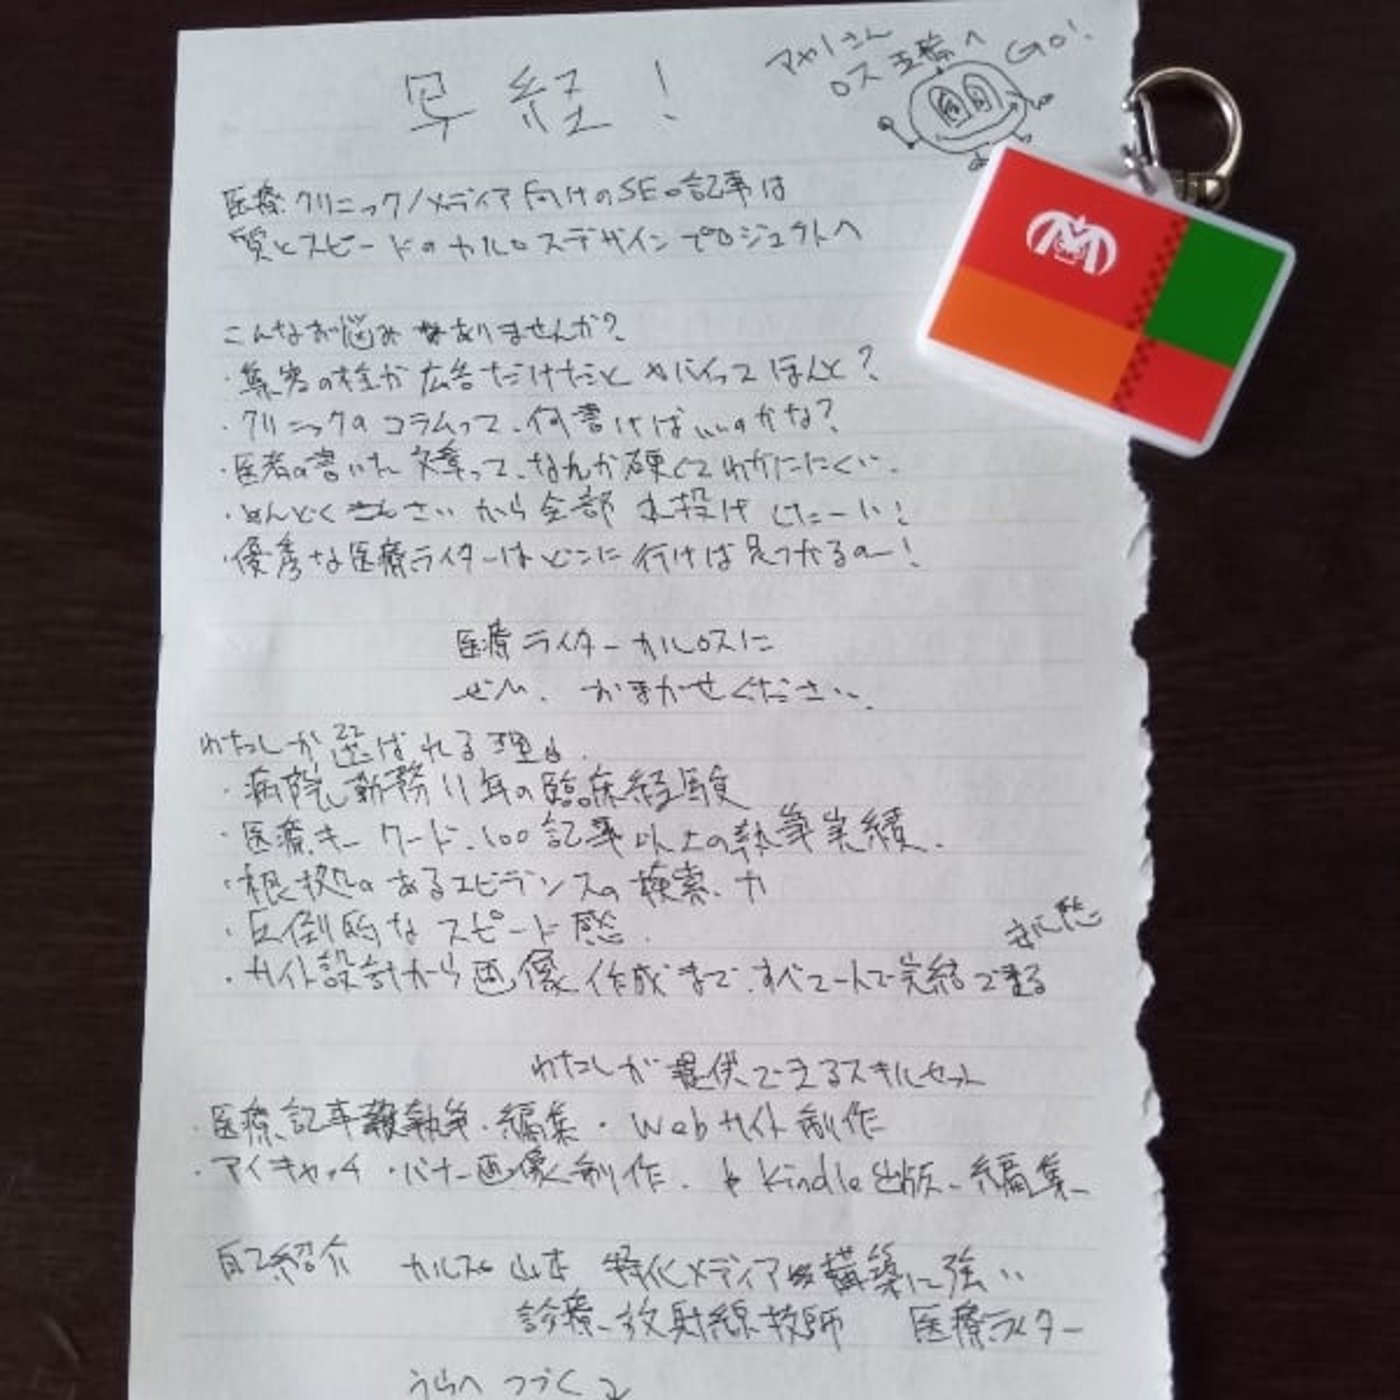 写経！
アヤノさん
ロス五輪へ GO!
医療クリニック/メディア向けのSEO記事は
質とスピードのカルロスデザインプロジェクトへ
こんなお悩みありませんか?
・集客の柱が広告だけだとヤバイってほんと?
・クリニックのコラムって、何書けばいいのかな?
・医者の書いた文章って、なんか硬くてわかりにくい.
・めんどくさいから全部丸投げしたーい!
・優秀な医療ライターはどこに行けば見つかるのー!
医療ライターカルロスに
ぜひ、おまかせください.
わたしが選ばれる理由.
・病院勤務11年の臨床経験
・医療キーワード、100記事以上の執筆実績.
・根拠のあるエビデンスの検索力
・圧倒的なスピード感.
・サイト設計から画像作成まで、すべて一人で完結できる
わたしが提供できるスキルセット
・医療記事執筆・編集 ・Webサイト制作
・アイキャッチ・バナー画像制作. Kindle出版、編集
自己紹介 カルロス山本 特化メディア構築に強い
診療放射線技師 医療ライター
うらへつづく